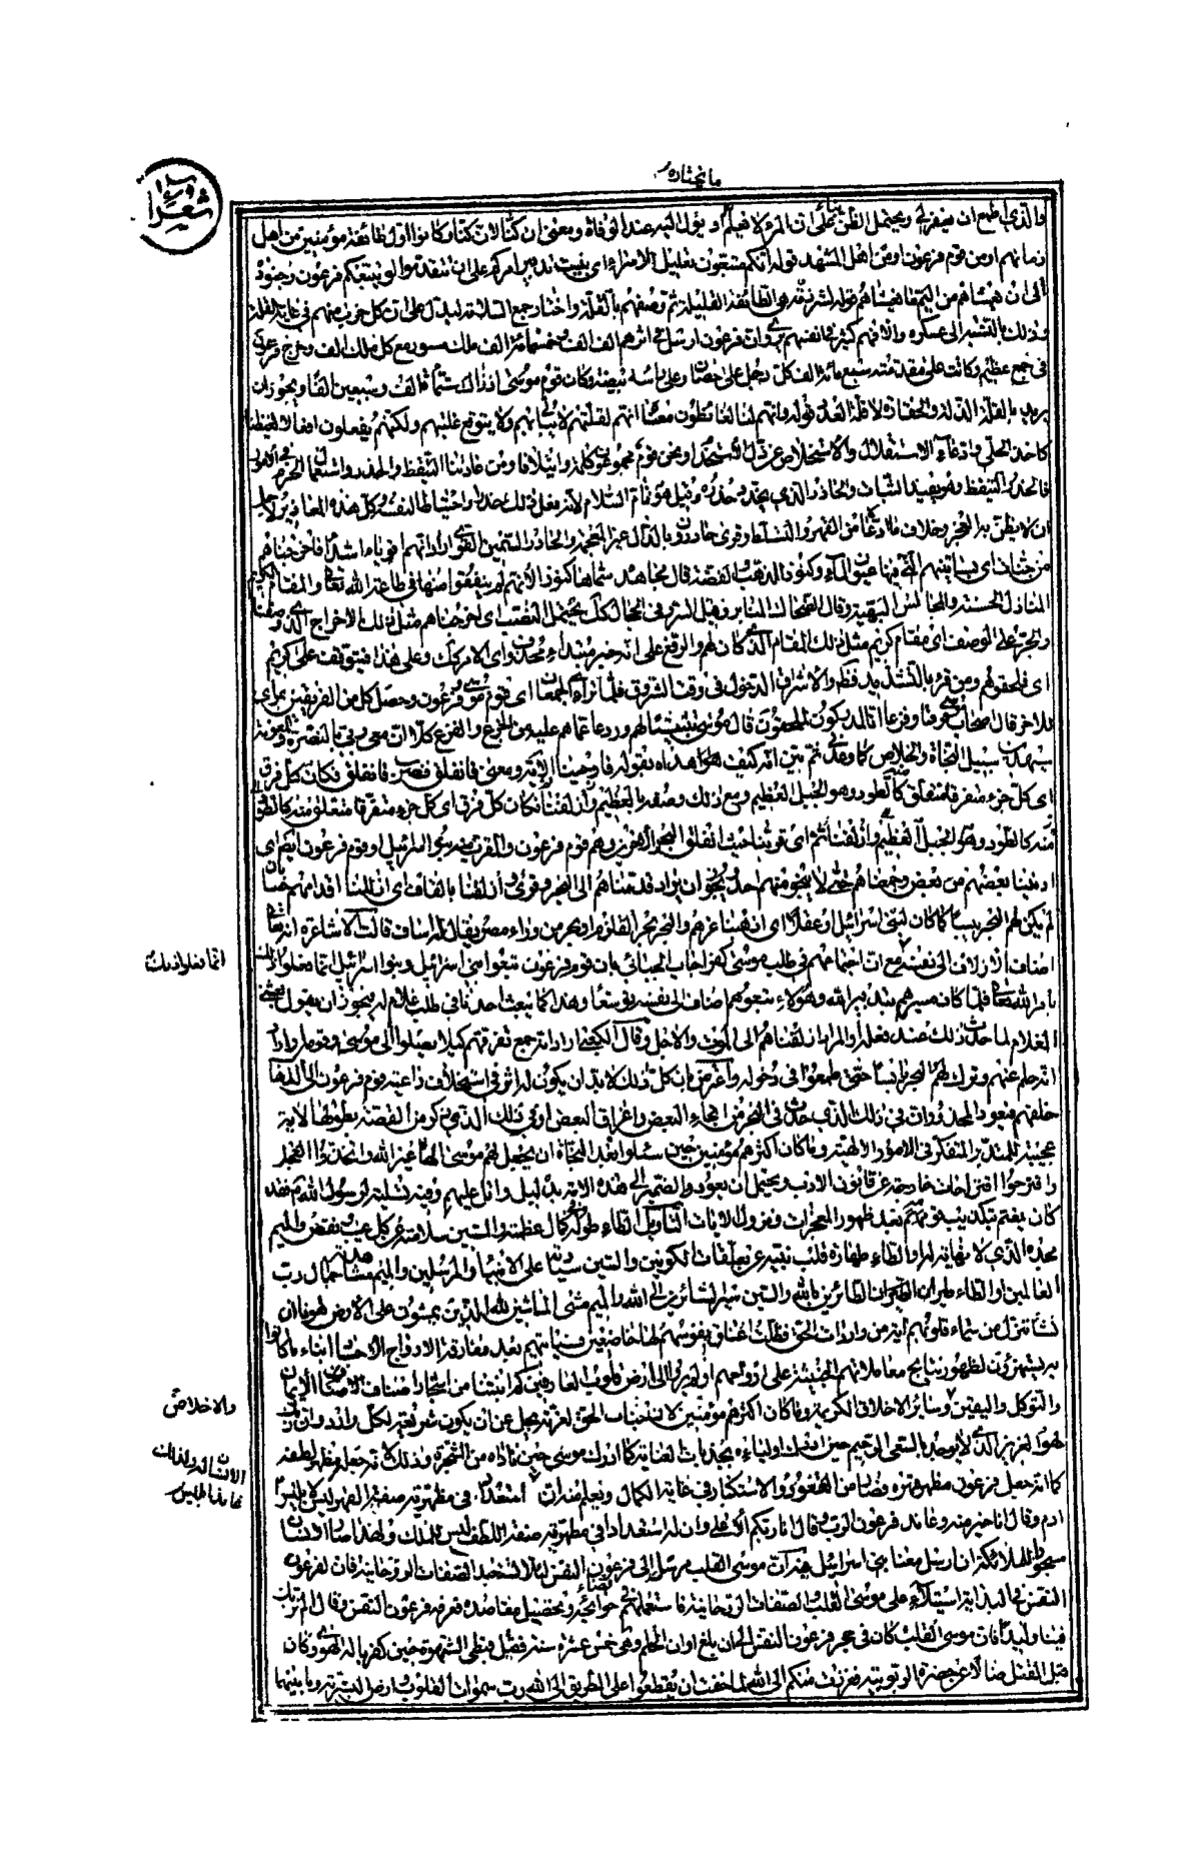 سورة
شعراء
والذي اطمع ان يغفر لي ويحتمل الظن اما بناء على ان المرء لا يعلم ما يؤل اليه عند الوفاة ومعنى ان كنا لان كنا وكانوا اول طائفة مؤمنين من اهل
زمانهم او من قوم فرعون او من اهل المشهد قوله انكم متبعون تعليل الاسراء اي بنيت تدبير امركم على ان تتقدموا ويتبعكم فرعون وجنوده
الى ان قوله لشرذمة هي الطائفة القليلة ثم وصفهم بالقلة واختار جمع السلامة ليدل على ان كل حزب منهم في غاية القلة
وذلك بالنسبة الى عسكره والا فهم كثير في انفسهم يروى ان فرعون ارسل في اثرهم الف الف وخمسمائة الف ملك مسور مع كل ملك الف وخرج فرعون
في جمع عظيم وكانت على مقدمته سبع مائة الف كل رجل على حصان وعلى راسه بيضة وكان قوم موسى اذ ذاك ستمائة الف وسبعين الفا ويجوز ان
يريد بالقلة الذلة والحقارة لا قلة العدد قوله وانهم لنا لغائظون معناه انهم لقلتهم لا يبالى بهم ولا يتوقع غلبتهم ولكنهم يفعلون افعالا تغيظنا
كاخذ الحلي وادعاء الاستقلال والاستخلاص عن ذل الاستخدام ونحن قوم مجموعون كلمة وائتلافا ومن عادتنا التيقظ والحذر واستعمال الحزم في الامور
فالحذر التيقظ وهو يفيد الثبات والحاذر الذي يجدد حذره
ان لا يظن به العجز وخلاف ما ادعاه من القهر والتسلط وقرئ حادرون بالدال غير المعجمة والحادر السمين القوي اراد انهم اقوياء اشداء فاخرجناهم
من جنات اي بساتينهم التي فيها عيون الماء وكنوز الذهب والفضة قال مجاهد سماها كنوزا لانهم لم ينفقوا منها في طاعة الله تعالى والمقام الكريم
المنازل الحسنة والمجالس البهية وقال الضحاك المنابر وقيل السرر في الحجال كذلك يحتمل النصب اي اخرجناهم مثل ذلك الاخراج الذي وصفناه
والجر على الوصف اي مقام كريم مثل ذلك المقام الذي كان لهم والرفع على انه خبر مبتداء محذوف اي الامر كذلك وعلى هذا فيتوقف على كريم
اي فلحقوهم ومن قرء بالتشديد فظاهر والاشراق الدخول في وقت الشروق فلما تراءى الجمعان اي قوم موسى وفرعون وحصل كل من الفريقين بمراى
للاخر قال اصحاب موسى خوفا وفزعا انا لمدركون لملحقون قال موسى تثبيتا لهم وردعا عما هم عليه من الجزع والفزع كلا ان معي ربي بالنصرة والمعونة
سيهدين سبيل النجاة والخلاص كما وعدني ثم بين انه كيف هداه بقوله فاوحينا الاية ومعنى فانفلق فضرب فانفلق فكان كل فرق
اي كل جزء متفرق منفلق منه كالطود وهو الجبل العظيم ومع ذلك وصفه بالعظيم
منه كالطود وهو الجبل العظيم وازلفنا ثم اي قربنا حيث انفلق البحر الاخرين وهم قوم فرعون والمقرب منه بنو اسرائيل او قوم فرعون ايضا اي
ادنينا بعضهم من بعض وجمعناهم حتى لا ينجو منهم احد ويجوز ان يراد قدمناهم الى البحر وقرئ وازلقنا بالقاف اي ازللنا اقدامهم حيث ان
لم يكن لهم البحر يبسا كما كان لبني اسرائيل او عقلا اي اذهبنا عزهم والبحر بحر القلزم او بحر من وراء مصر يقال له اساف قالت الاشاعرة انه تعالى
اضاف الازلاف الى نفسه مع ان اجتماعهم في طلب موسى كفر اجاب الجبائي بان قوم فرعون تبعوا بني اسرائيل وبنو اسرائيل انما فعلوا ذلك
بامر الله تعالى فلما كان مسيرهم بتدبير الله وهؤلاء يتبعوهم اضاف الى نفسه توسعا وهذا كما يتعب احدنا في طلب غلام له فيجوز ان يقول اتعبني
الغلام لما حدث ذلك عند فعله او المراد ازلفناهم الى الموت والاجل وقال الكعبي اراد انه جمع تفرقتهم كيلا يصلوا الى موسى وقومه او اراد
انه حلم عنهم وترك لهم البحر يابسا حتى طمعوا في دخوله واعترض بان كل ذلك لا بد ان يكون له اثر في استجلاب داعية قوم فرعون الى الذهاب
خلفهم فيعود المحذور ان في ذلك الذي حدث في البحر من انجاء البعض واغراق البعض او في ذلك الذي ذكر من القصة بطولها لاية
عجيبة للمتدبر المتفكر في الامور الالهية وما كان اكثرهم مؤمنين حين سئلوا بعد النجاة ان يجعل لهم موسى الها غير الله واتخذوا العجل
واقترحوا اقتراحات خارجة عن قانون الادب ويحتمل ان يعود الضمير الى هذه الامة بدليل واتل عليهم وفيه تسلية لرسول الله م فقد
كان يغتم بتكذيب قومه بعد ظهور المعجزات ونزول الايات التاويل الطاء طوله في كمال عظمته والسين سلامته عن كل عيب ونقص والميم
مجده الذي لا نهاية له او الطاء طهارة قلب نبيه عن تعلقات الكونين والسين سيادته على الانبياء والمرسلين والميم مشاهدته جمال رب
العالمين او الطاء طيران الطائرين بالله والسين سير السائرين الى الله والميم مشي الماشين لله الذين يمشون على الارض هونا ان
نشأ ننزل من سماء قلوبهم اية من واردات الحق فظلت اعناق نفوسهم لها خاضعين فسياتيهم بعد مفارقة الارواح الاجساد انباء ما كانوا
به يستهزؤن لظهور نتايج معاملاتهم الخبيثة على ارواحهم اولم يروا الى ارض قلوب العارفين كم انبتنا من اشجار اصناف الايمان
والتوكل واليقين وسائر الاخلاق الكريمة وما كان اكثرهم مؤمنين لان جناب الحق لعزته يجل عن ان يكون شريعة لكل وارد وان ربك
لهو العزيز الذي لا يوجد بالسعي الرحيم حين ادرك اولياءه بجذبات العناية كما ادرك موسى حين ناداه من الشجرة وذلك لانه جعله مظهر لطفه
كما انه جعل فرعون مظهر قهره والاستكبار في غاية الكمال وليعلم ان استعدادا في مظهرية صفة القهر ليس لابليس
ادم وقال انا خير منه وعاند فرعون الرب وقال انا ربكم الاعلى وان له استعدادا في مظهرية صفة اللطف ليس للملك ولهذا صار الانسان
مسجودا للملائكة ان ارسل معنا بني اسرائيل موسى القلب مرسل الى فرعون النفس لئلا تستعبد الصفات الروحانية فان لفرعون
النفس في البداية استيلاء على موسى القلب والصفات الروحانية فاستعملهم في قضاء حوائجه وتحصيل مقاصده فعرفه فرعون النفس وقال الم نربك
فينا وليدا فان موسى القلب كان في حجر فرعون النفس الى ان بلغ اوان الحلم وهي خمس عشرة سنة فقتل قبطي الشهوة حين كفر باله الهوى وكان
قبل القتل ضالا عن حضرة الربوبية ففررت منكم الى الله لما خفت ان يقطعوا علي الطريق الى الله رب سموات القلوب وارض البشرية وما بينهما
انما فعلوا ذلك
والاخلاص